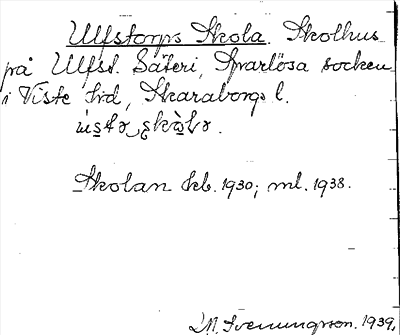 Ulfstorps Skola. Skolhus
på Ulfst. Säteri, Sparlösa socken
i Viste hd, Skaraborgs l.
Skolan kb. 1930; ml. 1938.
Svenungsson. 1939.